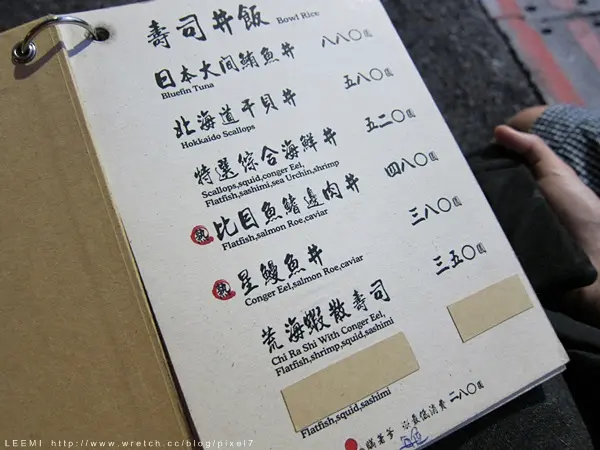 壽司丼飯 Bowl Rice
日本大间鮪魚丼 八八〇圓
Bluefin Tuna
北海道干貝丼 五八〇圓
Hokkaido Scallops
特選综合海鮮丼 五二〇圓
Scallops,squid,conger Eel,
Flatfish,sashimi,sea Urchin,shrimp
熟 比目魚鰭邊肉丼 四八〇圓
Flatfish,salmon Roe,caviar
熟 星鰻魚丼 三八〇圓
Conger Eel,salmon Roe,caviar
荒海蝦散壽司 三五〇圓
Chi Ra Shi With Conger Eel,
Flatfish,shrimp,squid,sashimi
Flatfish,squid,sashimi
最低消費 二八〇圓
LEEMI http://www.wretch.cc/blog/pixel7